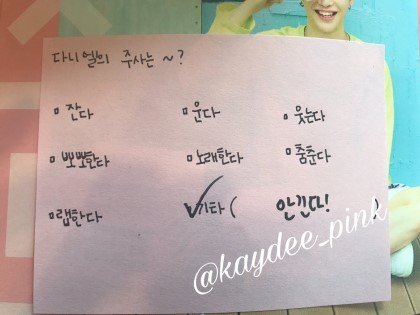 다니엘의 주사는 ~ ?
잔다 운다 웃는다
뽀뽀한다 노래한다 춤춘다
랩한다 ✓기타 ( 안긴다! )
@kaydee_pink